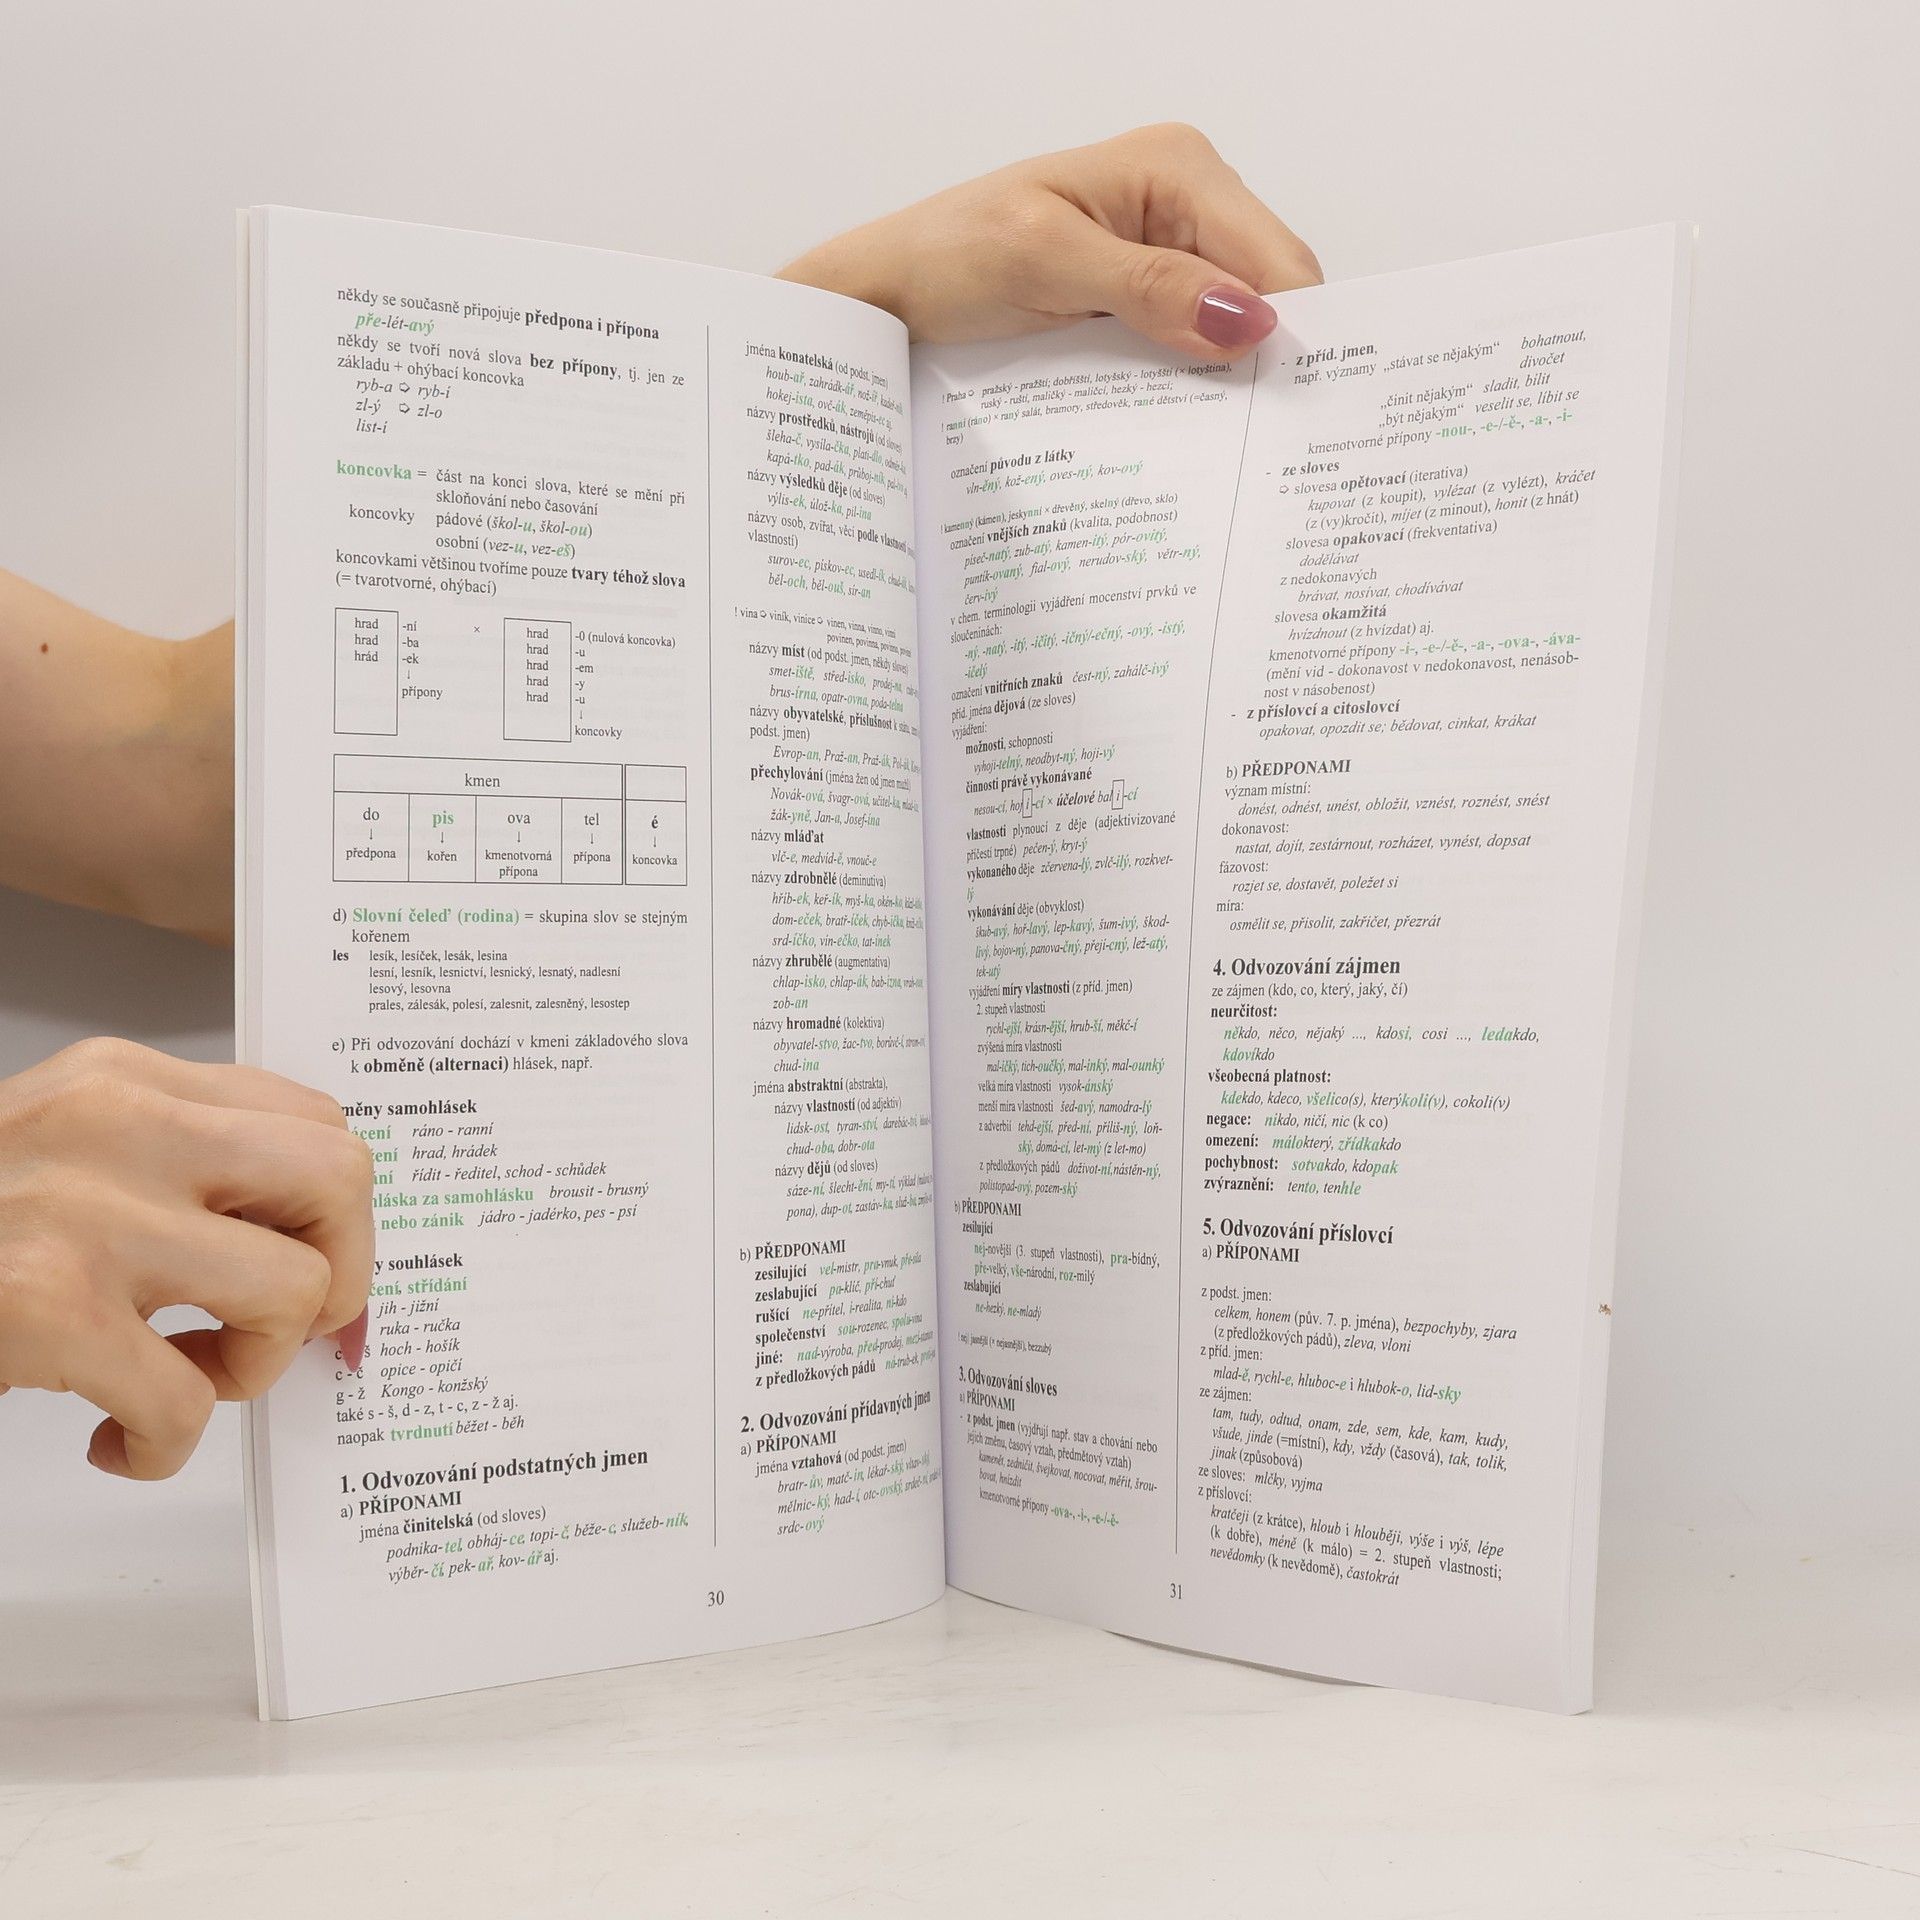 někdy se současně připojuje předpona i přípona
pře-lét-avý
někdy se tvoří nová slova bez přípony, tj. jen ze
základu + ohýbací koncovka
ryb-a ➪ ryb-í
zl-ý ➪ zl-o
list-í
koncovka = část na konci slova, které se mění při
skloňování nebo časování
koncovky pádové (škol-u, škol-ou)
osobní (vez-u, vez-eš)
koncovkami většinou tvoříme pouze tvary téhož slova
(= tvarotvorné, ohýbací)
hrad -ní × hrad -0 (nulová koncovka)
hrad -ba hrad -u
hrád -ek hrad -em
↓ hrad -y
přípony hrad -u
↓
koncovky
kmen
do pis ova tel é
↓ ↓ ↓ ↓ ↓
předpona kořen kmenotvorná přípona koncovka
přípona
d) Slovní čeleď (rodina) = skupina slov se stejným
kořenem
les lesík, lesíček, lesák, lesina
lesní, lesník, lesnictví, lesnický, lesnatý, nadlesní
lesový, lesovna
prales, zálesák, polesí, zalesnit, zalesněný, lesostep
e) Při odvozování dochází v kmeni základového slova
k obměně (alternaci) hlásek, např.
měny samohlásek
ácení ráno - ranní
žení hrad, hrádek
ání řídit - ředitel, schod - schůdek
hláska za samohlásku brousit - brusný
nebo zánik jádro - jadérko, pes - psí
y souhlásek
čení, střídání
jih - jižní
ruka - ručka
š hoch - hošík
c - č opice - opičí
g - ž Kongo - konžský
také s - š, d - z, t - c, z - ž aj.
naopak tvrdnutí běžet - běh
1. Odvozování podstatných jmen
a) PŘÍPONAMI
jména činitelská (od sloves)
podnika-tel, obháj-ce, topi-č, běže-c, služeb-ník,
výběr-čí, pek-ař, kov-ář aj.
jména konatelská (od podst. jmen)
houb-ař, zahrád-kář, nož-íř,
hokej-ista, ovč-ák, zeměpis-ec aj.
názvy prostředků, nástrojů (od sloves)
šleha-č, vysíla-čka, plati-dlo,
kapá-tko, pad-ák, průboj-ník,
názvy výsledků děje (od sloves)
výlis-ek, úlož-ka, pil-ina
názvy osob, zvířat, věcí podle vlastností
vlastností)
surov-ec, pískov-ec, usedl-ík,
běl-och, běl-ouš, sir-an
! vina ➪ viník, vinice ➪ vinen, vinna, vinno, vinni
povinen, povinna, povinno,
názvy míst (od podst. jmen, někdy sloves)
smet-iště, střed-isko, prodej-na,
brus-írna, opatr-ovna, poda-telna
názvy obyvatelské, příslušnost k
podst. jmen)
Evrop-an, Praž-an, Praž-ák, Pol-ák,
přechylování (jména žen od jmen mužů)
Novák-ová, švagr-ová, učitel-ka,
žák-yně, Jan-a, Josef-ína
názvy mláďat
vlč-e, medvíd-ě, vnouč-e
názvy zdrobnělé (deminutiva)
hříb-ek, keř-ík, myš-ka, okén-ko,
dom-eček, bratř-íček, chyb-ička,
srd-íčko, vín-ečko, tat-ínek
názvy zhrubělé (augmentativa)
chlap-isko, chlap-ák, bab-izna,
zob-an
názvy hromadné (kolektiva)
obyvatel-stvo, žac-tvo, borůvč-í,
chud-ina
jména abstraktní (abstrakta),
názvy vlastností (od adjektiv)
lidsk-ost, tyran-ství, darebác-tví,
chud-oba, dobr-ota
názvy dějů (od sloves)
sáze-ní, šlecht-ění, my-tí, výklad
pona), dup-ot, zastáv-ka, služ-ba,
b) PŘEDPONAMI
zesilující vel-mistr, pra-vnuk, pře-síla
zeslabující pa-klíč, pří-chuť
rušící ne-přítel, i-realita, ni-kdo
společenství sou-rozenec, spolu-vina
jiné: nad-výroba, před-prodej,
z předložkových pádů ná-trub-ek,
2. Odvozování přídavných jmen
a) PŘÍPONAMI
jména vztahová (od podst. jmen)
bratr-ův, matč-in, lékař-ský,
mělnic-ký, had-í, otc-ovský,
srdc-ový
30
! Praha ➪ pražský - pražští; dobříšští, lotyšský - lotyšští (× lotyština),
ruský - ruští, maličký - maličcí, hezký - hezcí;
! ranní (ráno) × raný salát, brambory, středověk, rané dětství (=časný,
brzy)
označení původu z látky
vln-ěný, kož-ený, oves-ný, kov-ový
! kamenný (kámen), jeskynní × dřevěný, skelný (dřevo, sklo)
označení vnějších znaků (kvalita, podobnost)
píseč-natý, zub-atý, kamen-itý, pór-ovitý,
puntík-ovaný, fial-ový, nerudov-ský, větr-ný,
červ-ivý
v chem. terminologii vyjádření mocenství prvků ve
sloučeninách:
-ný, -natý, -itý, -ičitý, -ičný/-ečný, -ový, -istý,
-ičelý
označení vnitřních znaků čest-ný, zahálč-ivý
příd. jména dějová (ze sloves)
vyjádření:
možnosti, schopnosti
vyhoji-telný, neodbyt-ný, hoji-vý
činnosti právě vykonávané
nesou-cí, hoj i -cí × účelové bal i -cí
vlastnosti plynoucí z děje (adjektivizované
příčestí trpné) pečen-ý, kryt-ý
vykonaného děje zčervena-lý, zvlč-ilý, rozkvet-
lý
vykonávání děje (obvyklost)
škub-avý, hoř-lavý, lep-kavý, šum-ivý, škod-
livý, bojov-ný, panova-čný, přejí-cný, lež-atý,
tek-utý
vyjádření míry vlastnosti (z příd. jmen)
2. stupeň vlastnosti
rychl-ejší, krásn-ější, hrub-ší, měkč-í
zvýšená míra vlastnosti
mal-ičký, tich-oučký, mal-inký, mal-ounký
velká míra vlastnosti vysok-ánský
menší míra vlastnosti šed-avý, namodra-lý
z adverbií tehd-ejší, před-ní, příliš-ný, loň-
ský, domá-cí, let-mý (z let-mo)
z předložkových pádů doživot-ní,nástěn-ný,
polistopad-ový, pozem-ský
b) PŘEDPONAMI
zesilující
nej-novější (3. stupeň vlastnosti), pra-bídný,
pře-velký, vše-národní, roz-milý
zeslabující
ne-hezký, ne-mladý
! nej jasnější (× nejasnější), bezzubý
3. Odvozování sloves
a) PŘÍPONAMI
- z podst. jmen (vyjdřují např. stav a chování nebo
jejich změnu, časový vztah, předmětový vztah)
kamenět, zedničit, švejkovat, nocovat, měřit, šrou-
bovat, hnízdit
kmenotvorné přípony -ova-, -i-, -e-/-ě-
- z příd. jmen,
např. významy „stávat se nějakým“ bohatnout,
divočet
„činit nějakým“ sladit, bílit
„být nějakým“ veselit se, líbit se
kmenotvorné přípony -nou-, -e-/-ě-, -a-, -i-
- ze sloves
➪ slovesa opětovací (iterativa)
kupovat (z koupit), vylézat (z vylézt), kráčet
(z (vy)kročit), míjet (z minout), honit (z hnát)
slovesa opakovací (frekventativa)
dodělávat
z nedokonavých
brávat, nosívat, chodívávat
slovesa okamžitá
hvízdnout (z hvízdat) aj.
kmenotvorné přípony -i-, -e-/-ě-, -a-, -ova-, -áva-
(mění vid - dokonavost v nedokonavost, nenásob-
nost v násobenost)
- z příslovcí a citoslovcí
opakovat, opozdit se; bědovat, cinkat, krákat
b) PŘEDPONAMI
význam místní:
donést, odnést, unést, obložit, vznést, roznést, snést
dokonavost:
nastat, dojít, zestárnout, rozházet, vynést, dopsat
fázovost:
rozjet se, dostavět, poležet si
míra:
osmělit se, přisolit, zakřičet, přezrát
4. Odvozování zájmen
ze zájmen (kdo, co, který, jaký, čí)
neurčitost:
někdo, něco, nějaký ..., kdosi, cosi ..., ledakdo,
kdovíkdo
všeobecná platnost:
kdekdo, kdeco, všelico(s), kterýkoli(v), cokoli(v)
negace: nikdo, ničí, nic (k co)
omezení: málokterý, zřídkakdo
pochybnost: sotvakdo, kdopak
zvýraznění: tento, tenhle
5. Odvozování příslovcí
a) PŘÍPONAMI
z podst. jmen:
celkem, honem (pův. 7. p. jména), bezpochyby, zjara
(z předložkových pádů), zleva, vloni
z příd. jmen:
mlad-ě, rychl-e, hluboc-e i hlubok-o, lid-sky
ze zájmen:
tam, tudy, odtud, onam, zde, sem, kde, kam, kudy,
všude, jinde (=místní), kdy, vždy (časová), tak, tolik,
jinak (způsobová)
ze sloves: mlčky, vyjma
z příslovcí:
kratčeji (z krátce), hloub i hlouběji, výše i výš, lépe
(k dobře), méně (k málo) = 2. stupeň vlastnosti;
nevědomky (k nevědomě), častokrát
31